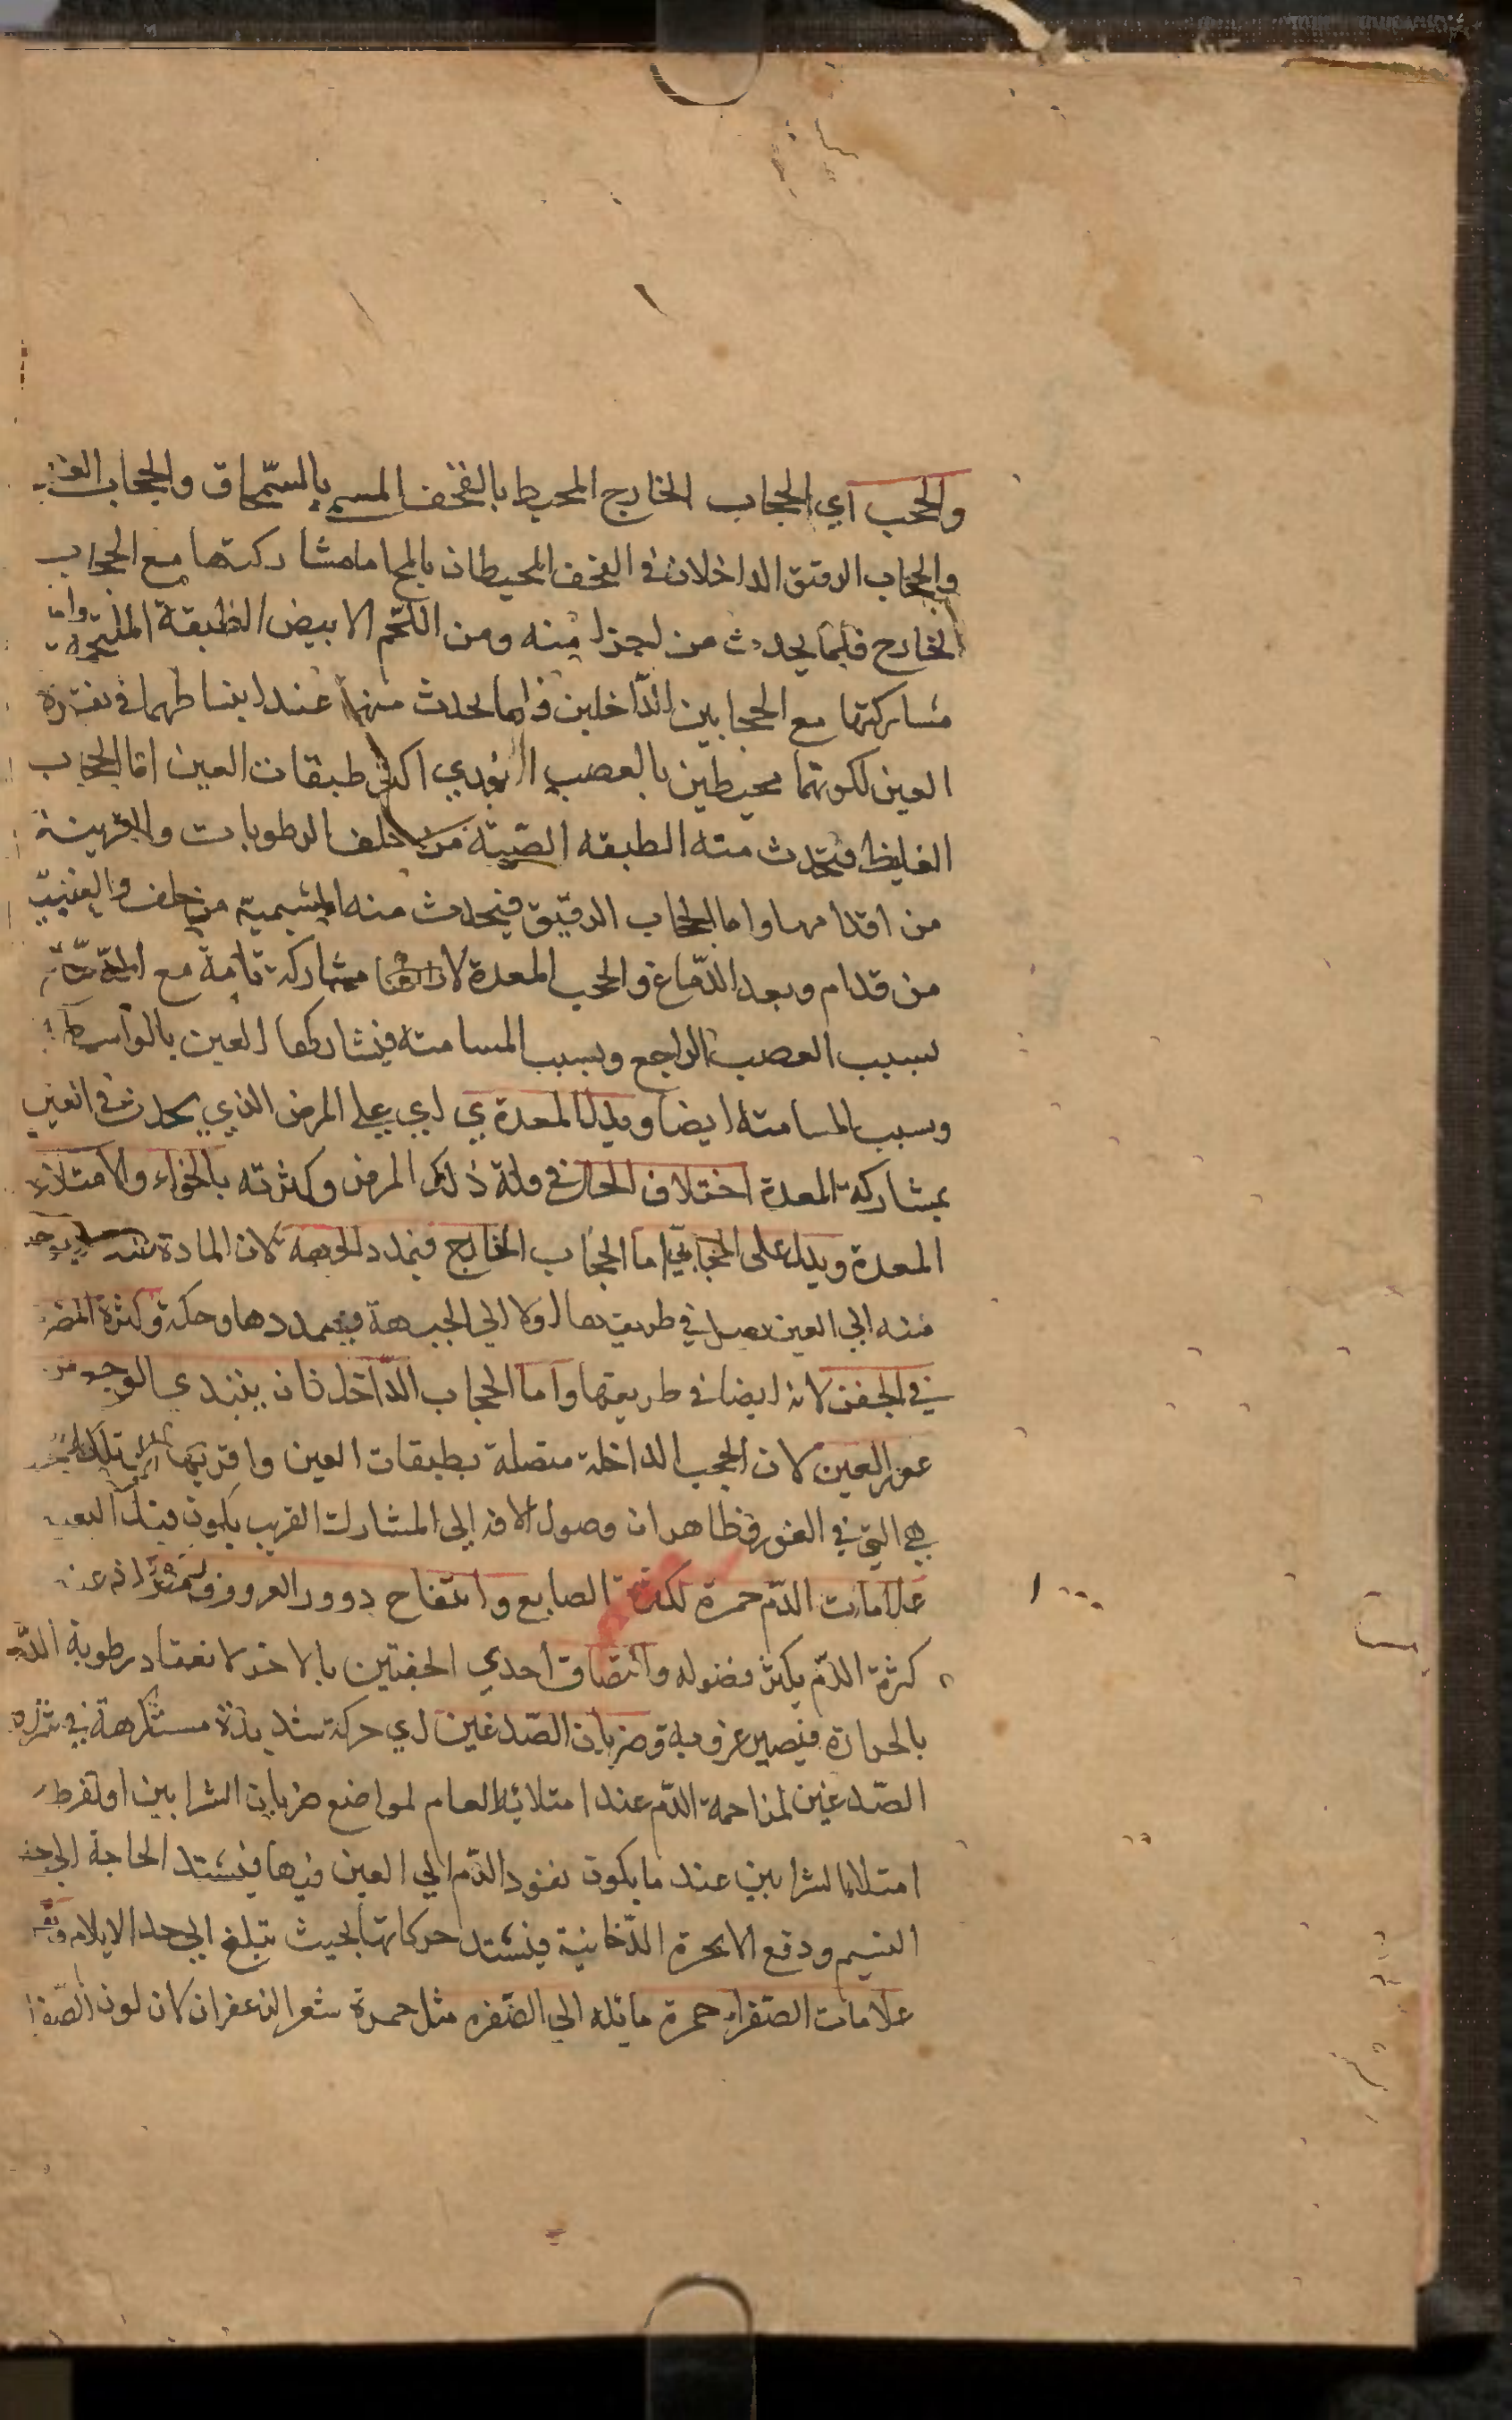 والحجب اي الحجاب الخارج المحيط بالقحف المسمي بالسمحاق والحجاب
والحجاب الرقيق الداخلان في القحف المحيطان بالمخ اما مشاركتها مع الحجاب
الخارج فلما يحدث من اجزا منه ومن اللحم الابيض الطبقة الملتحمة واما
مشاركتها مع الحجابين الداخلين فلما يحدث منهما عند انبساطهما في نقرة
العين لكونهما محيطين بالعصب النوري اكثر طبقات العين اما الحجاب
الغليظ فيحدث منه الطبقه الصلبة من خلف الرطوبات والقرنية
من اقدامها واما الحجاب الرقيق فيحدث منه المشيمية من خلف والعنبية
من قدام وبعد الدماغ والحجب المعدة لان لها مشاركة تامة مع
بسبب العصب الراجع وبسبب المسامتة فيشاركها العين بالواسطة
وبسبب المسامتة ايضا ويدل المعدي اي علي المرض الذي يحدث في العين
بمشاركة المعدة اختلاف الحال في قلة ذلك المرض وكثرته بالخواء والامتلاء
المعدة ويدل علي الحجابي اما الحجاب الخارج فتمدد الجبهة لان المادة
منه الي العين يصل في طريقها اولا الي الجبهة فيمددها وحكة وكثرة المضر
في الجفن لانه ايضا في طريقها واما الحجاب الداخل فان يبتدي الوجع من
غور العين لان الحجب الداخلة متصلة بطبقات العين واقربها الي تلك
هي التي في الغور فظاهر ان وصول الافة الي المشارك القريب يكون قبل البعيد
علامات الدم حمرة لكثرة الصابغ وانتفاخ ودرور العروق
كثرة الدم يكثر فضوله والتصاق احدي الجفنين بالاخر لانعقاد رطوبة الدم
بالحرارة فيصير غروية وضربان الصدغين اي حركة شديدة مستكرهة في
الصدغين لمزاحمة الدم عند امتلائه العام لمواضع ضربان الشرايين او لفرط
امتلا الشرايين عند ما يكون نفوذ الدم الي العين فيها فيشتد الحاجة الي
النسيم ودفع الابخرة الدخانية فيشتد حركاتها بحيث تبلغ الي حد الايلام
علامات الصفراء حمرة مائلة الي الصفرة مثل حمرة شعر الزعفران كان لون الصفرا